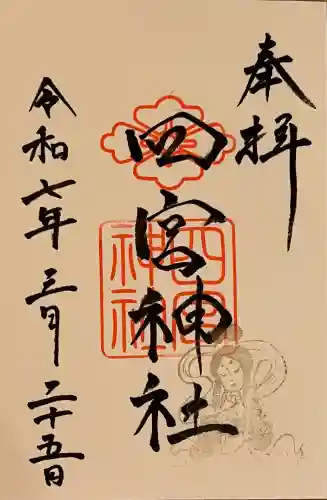 奉拝
四宮神社
四宮
神社
令和七年三月二十五日